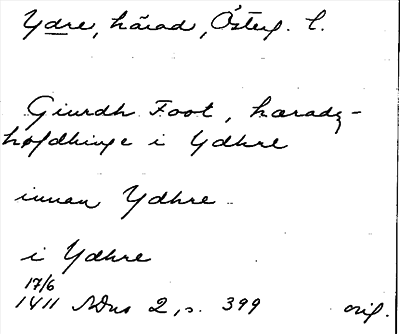 Ydre, härad, Österg. l.
Giurdh Foot, hæradz-
høfdhinge i Ydhre
innan Ydhre
i Ydhre
17/6
1411 SDns 2, s. 399 orig.